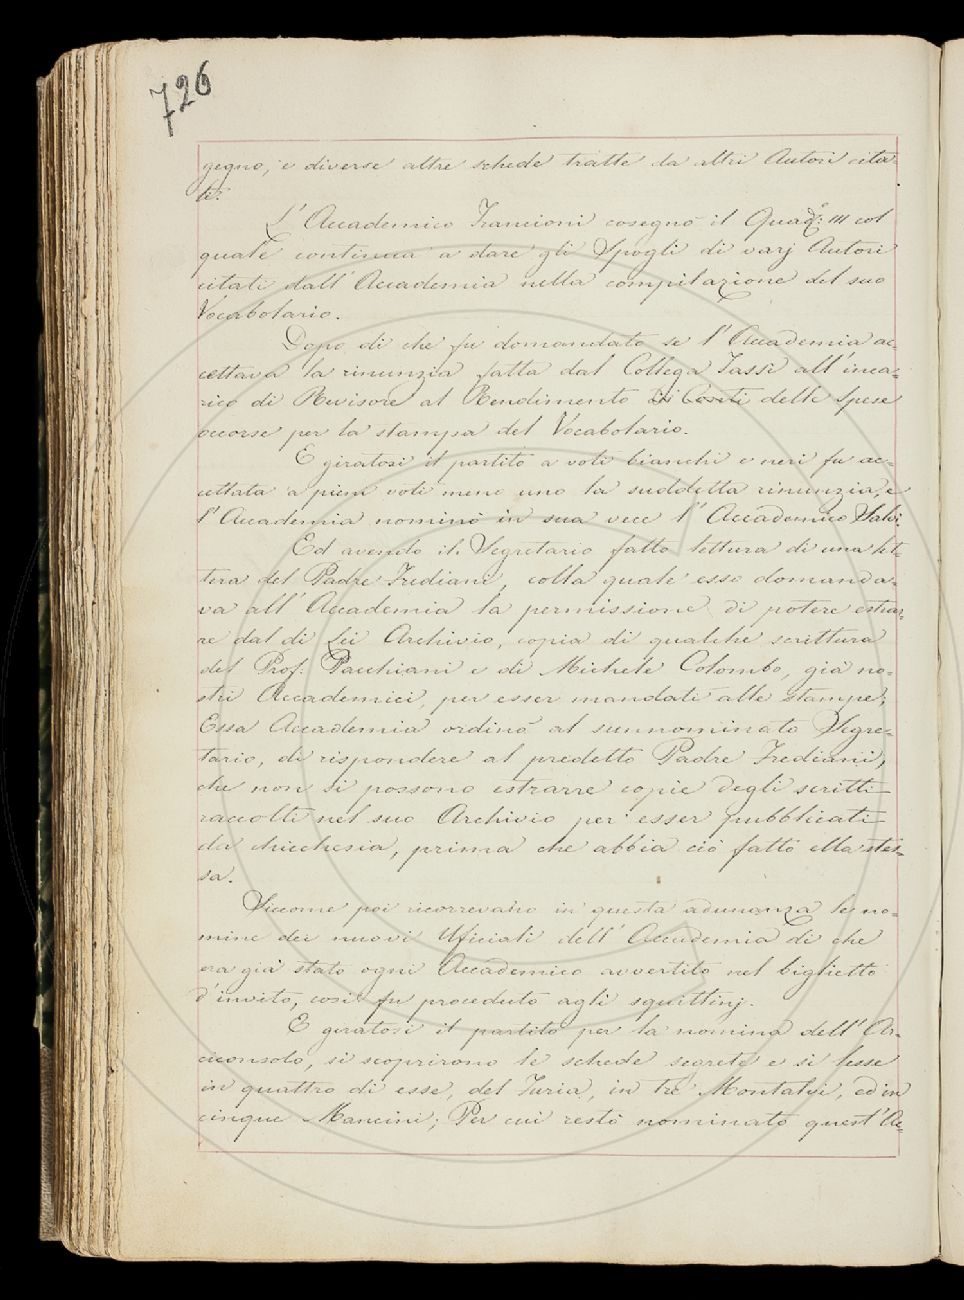 726
gegno, e diverse altre schede tratte da altri Autori cita-
ti.
L'Accademico Francioni cosegnò il Quad.º III col
quale continua a dare gli Spogli di varj Autori
citati dall'Accademia nella compilazione del suo
Vocabolario.
Dopo di che fu domandato se l'Accademia ac-
cettava la rinunzia fatta dal Collega Tassi all'inca-
rico di Revisore al Rendimento di Conti delle spese
occorse per la stampa del Vocabolario.
E giratosi il partito a voti bianchi e neri fu ac-
cettata a pieni voti meno uno la suddetta rinunzia, e
l'Accademia nominò in sua vece l'Accademico Salvi.
Ed avendo il Segretario fatto lettura di una let-
tera del Padre Frediani, colla quale esso domanda-
va all'Accademia la permissione di potere estrar-
re dal di Lei Archivio, copia di qualche scrittura
del Prof. Pacchiani e di Michele Colombo, già no-
stri Accademici, per esser mandati alle stampe,
Essa Accademia ordinò al sunnominato Segre-
tario, di rispondere al predetto Padre Frediani,
che non si possono estrarre copie degli scritti
raccolti nel suo Archivio per esser pubblicati
da chicchesia, prima che abbia ciò fatto ella stes-
sa.
Siccome poi ricorrevano in questa adunanza le no-
mine dei nuovi Uficiali dell'Accademia di che
era già stato ogni Accademico avvertito nel biglietto
d'invito, così fu proceduto agli squittinj.
E giratosi il partito per la nomina dell'Ar-
ciconsolo, si scoprirono le schede segrete e si lesse
in quattro di esse, del Furia, in tre Montalvi, ed in
cinque Mancini; Per cui restò nominato quest'Ac-